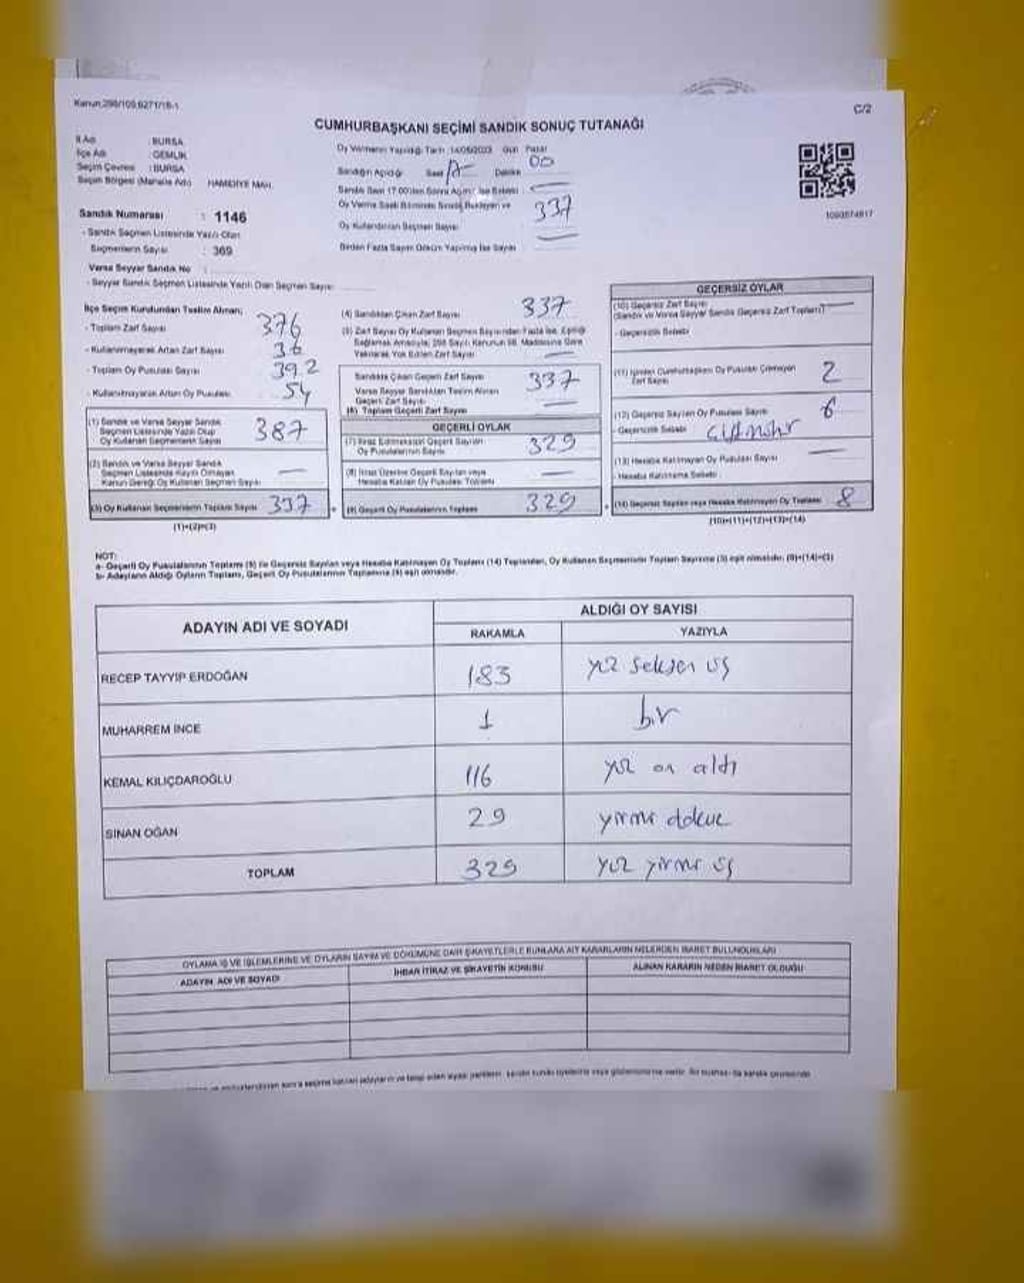 Kanun:298/105,6271/18-1
C/2
CUMHURBAŞKANI SEÇİMİ SANDIK SONUÇ TUTANAĞI
İl Adı : BURSA
İlçe Adı : GEMLİK
Seçim Çevresi : BURSA
Seçim Bölgesi (Mahalle Adı) HAMİDİYE MAH.
Sandık Numarası : 1146
- Sandık Seçmen Listesinde Yazılı Olan
Seçmenlerin Sayısı : 369
Varsa Seyyar Sandık No :
- Seyyar Sandık Seçmen Listesinde Yazılı Olan Seçmen Sayısı
Oy Vermenin Yapıldığı Tarih : 14/05/2023 Gün Pazar
Sandığın Açıldığı Saat Dakika 00
Oy Verme Saati Bitiminde Sırada Bekleyen ve
Oy Kullandırılan Seçmen Sayısı 337
Birden Fazla Sayım Döküm Yapılmış İse Sayısı —
1090874817
İlçe Seçim Kurulundan Teslim Alınan;
- Toplam Zarf Sayısı 376
- Kullanılmayarak Artan Zarf Sayısı 36
- Toplam Oy Pusulası Sayısı 392
- Kullanılmayarak Artan Oy Pusulası 54
(1) Sandık ve Varsa Seyyar Sandık
Seçmen Listesinde Yazılı Olup
Oy Kullanan Seçmenlerin Sayısı 387
(2) Sandık ve Varsa Seyyar Sandık
Seçmen Listesinde Kayıtlı Olmayan
Kanun Gereği Oy Kullanan Seçmen Sayısı —
(3) Oy Kullanan Seçmenlerin Toplam Sayısı 337
(1)+(2)=(3)
(4) Sandıktan Çıkan Zarf Sayısı 337
(5) Zarf Sayısı Oy Kullanan Seçmen Sayısından Fazla İse, Eşitliği
Sağlamak Amacıyla, 298 Sayılı Kanunun 98. Maddesine Göre
Yakılarak Yok Edilen Zarf Sayısı —
Sandıkta Çıkan Geçerli Zarf Sayısı 337
Varsa Seyyar Sandıktan Teslim Alınan
Geçerli Zarf Sayısı —
(6) Toplam Geçerli Zarf Sayısı
GEÇERLİ OYLAR
(7) İtiraz Edilmeksizin Geçerli Sayılan
Oy Pusulalarının Sayısı 329
(8) İtiraz Üzerine Geçerli Sayılan veya
Hesaba Katılan Oy Pusulası Toplamı —
(9) Geçerli Oy Pusulalarının Toplamı 329
GEÇERSİZ OYLAR
(10) Geçersiz Zarf Sayısı
(Sandık ve Varsa Seyyar Sandık Geçersiz Zarf Toplamı) —
- Geçersizlik Sebebi
(11) İçinden Cumhurbaşkanı Oy Pusulası Çıkmayan
Zarf Sayısı 2
(12) Geçersiz Sayılan Oy Pusula Sayısı 6
- Geçersizlik Sebebi
(13) Hesaba Katılmayan Oy Pusulası Sayısı —
- Hesaba Katılmama Sebebi
(14) Geçersiz Sayılan veya Hesaba Katılmayan Oy Toplamı 8
(10)+(11)+(12)+(13)=(14)
NOT:
a- Geçerli Oy Pusulalarının Toplamı (9) ile Geçersiz Sayılan veya Hesaba Katılmayan Oy Toplamı (14) Toplamları, Oy Kullanan Seçmenlerin Toplam Sayısına (3) eşit olmalıdır. (9)+(14)=(3)
b- Adayların Aldığı Oyların Toplamı, Geçerli Oy Pusulalarının Toplamına (9) eşit olmalıdır.
ADAYIN ADI VE SOYADI
ALDIĞI OY SAYISI
RAKAMLA YAZIYLA
RECEP TAYYİP ERDOĞAN 183 yüz seksen üç
MUHARREM İNCE 1 bir
KEMAL KILIÇDAROĞLU 116 yüz on altı
SİNAN OĞAN 29 yirmi dokuz
TOPLAM 329 yüz yirmi üç
OYLAMA İŞ VE İŞLEMLERİNE VE OYLARIN SAYIM VE DÖKÜMÜNE DAİR ŞİKAYETLERLE BUNLARA AİT KARARLARIN NELERDEN İBARET BULUNDUKLARI
ADAYIN ADI VE SOYADI İHBAR İTİRAZ VE ŞİKAYETİN KONUSU ALINAN KARARIN NEDEN İBARET OLDUĞU